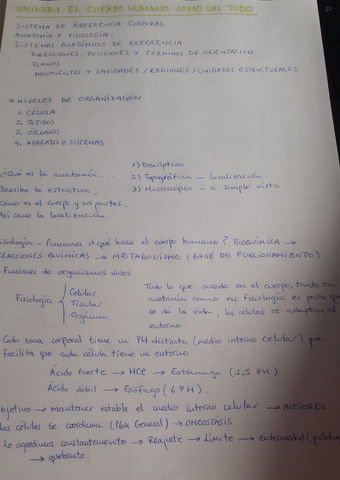 UNIDAD 1. EL CUERPO HUMANO COMO UN TODO
SISTEMA DE REFERENCIA CORPORAL
ANATOMÍA Y FISIOLOGÍA.
SISTEMAS ANATÓMICOS DE REFERENCIA
DIRECCIONES, POSICIONES Y TÉRMINOS DE ORIENTACIÓN
PLANOS
MOVIMIENTOS Y CAVIDADES / REGIONES / UNIDADES ESTRUCTURALES
4 NIVELES DE ORGANIZACIÓN
1. CÉLULA
2. TEJIDOS
3. ÓRGANOS
4. APARATO O SISTEMAS
¿Qué es la anatomía...
Describe la estructura,
cómo es el cuerpo y sus partes.
Así como la localización.
1) Descriptiva
2) Topográfica - localización.
3) Macroscópica - a simple vista.
Fisiología - funciones ¿qué hace el cuerpo humano? BIOQUÍMICA →
REACCIONES QUÍMICAS → METABOLISMO (BASE DE FUNCIONAMIENTO)
Funciones de organismos vivos
Fisiología { Celular
Tisular
Orgánica
Todo lo que sucede en el cuerpo, tanto en
anatomía como en fisiología es para que
se dé la vida; las células se adaptan al
entorno.
Cada zona corporal tiene un PH distinto (medio interno celular) que
facilita que cada célula tiene un entorno
Ácido fuerte → HCP → Estómago (2,5 PH)
Ácido débil → Esófago (6 PH).
Objetivo → mantener estable el medio interno celular → ACCIONES
Las células se coordinan (PH General) → OMEOSTASIS
Le agredimos constantemente → Reajuste → Límite → enfermedad
→ quebranto.